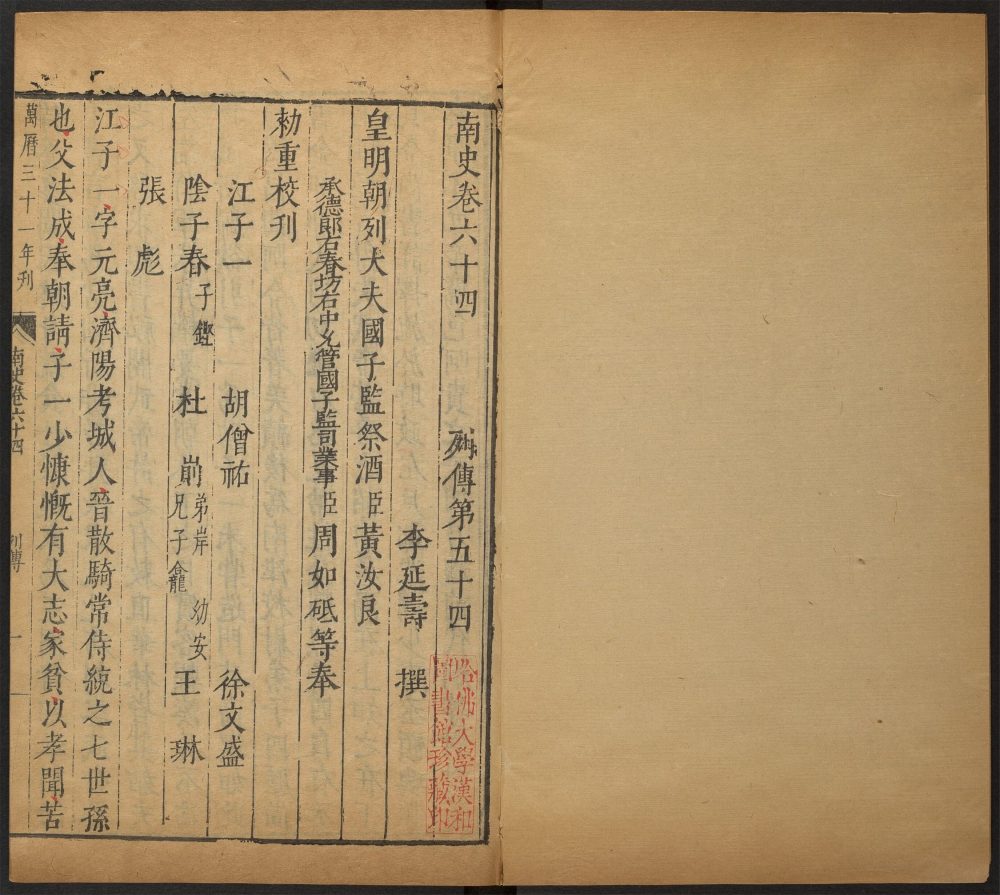 南史卷六十四 列傳第五十四
李延壽 撰
皇明朝列大夫國子監祭酒臣黃汝良
承德郎右春坊右中允管國子監司業事臣周如砥等奉
勑重校刊
江子一 胡僧祐 徐文盛
陰子春子鏗 杜崱弟岸 幼安 兄子龕 王琳
張彪
江子一字元亮濟陽考城人晉散騎常侍統之七世孫
也父法成奉朝請子一少慷慨有大志家貧以孝聞苦
萬曆三十一年刊
南史卷六十四
列傳
一
哈佛大學漢和
圖書館珍藏印